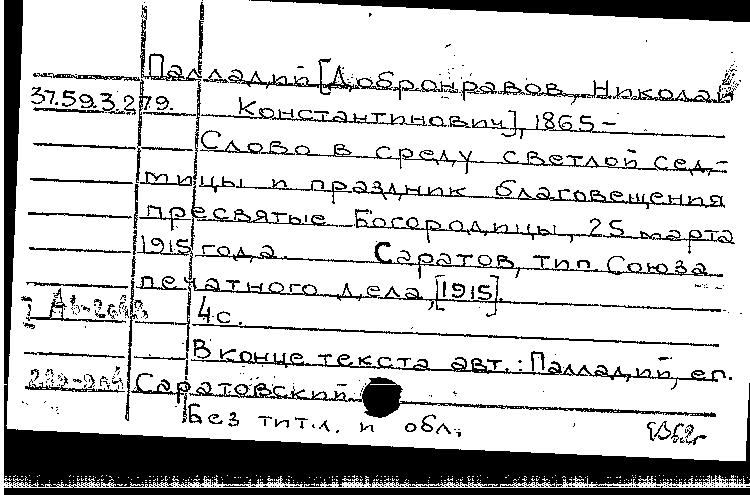 Палладий [Добронравов, Николай
37.59.3.279. Константинович], 1865-
Слово в среду светлой сед-
мицы и праздник благовещения
пресвятые Богородицы, 25 марта
1915 года. Саратов, тип. Союза
печатного дела, [1915].
4с.
В конце текста авт.: Палладий, еп.
Саратовский.
Без тит.л. и обл.